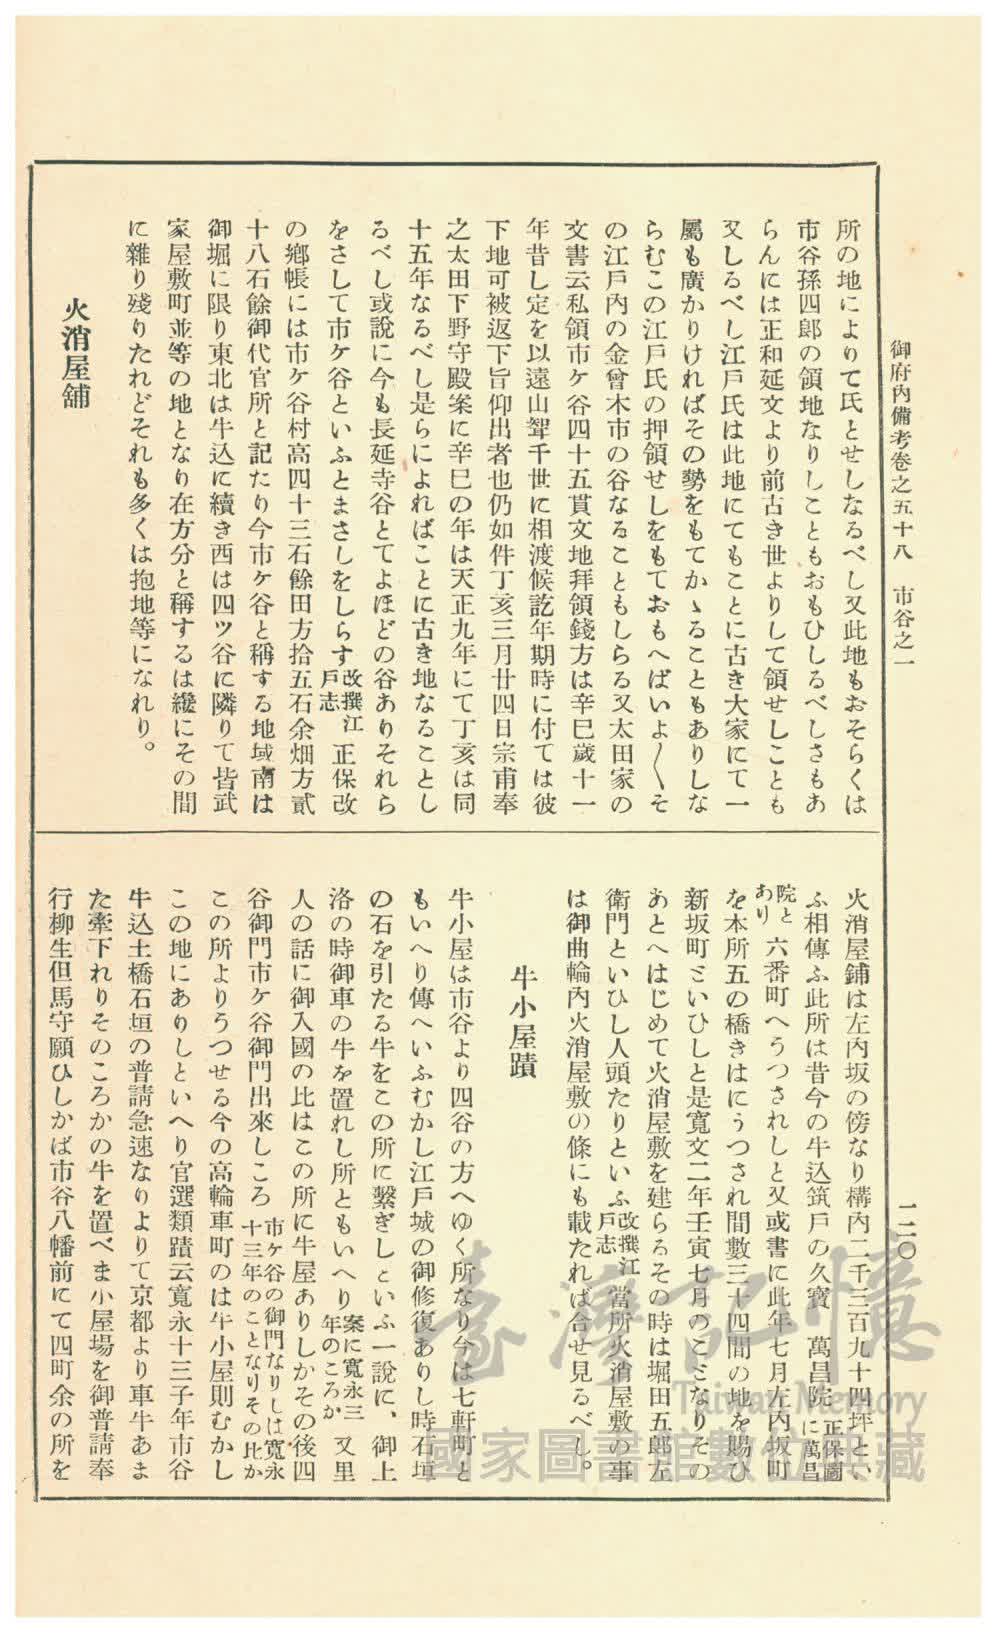 御府內備考卷之五十八　市谷之一
一二〇
所の地によりて氏とせしなるべし又此地もおそらくは
市谷孫四郞の領地なりしこともおもひしるべしさもあ
らんには正和延文より前古き世よりして領せしことも
又しるべし江戶氏は此地にてもことに古き大家にて一
屬も廣かりければその勢をもてかゝることもありしな
らむこの江戶氏の押領せしをもておもへばいよ〱そ
の江戶內の金曾木市の谷なることもしらる又太田家の
文書云私領市ケ谷四十五貫文地拜領錢方は辛巳歲十一
年昔し定を以遠山聟千世に相渡候訖年期時に付ては彼
下地可被返下旨仰出者也仍如件丁亥三月廿四日宗甫奉
之太田下野守殿案に辛巳の年は天正九年にて丁亥は同
十五年なるべし是らによればことに古き地なることし
るべし或說に今も長延寺谷とてよほどの谷ありそれら
をさして市ケ谷といふとまさしをしらす改撰江戶志　正保改
の鄕帳には市ケ谷村高四十三石餘田方拾五石余畑方貳
十八石餘御代官所と記たり今市ケ谷と稱する地域南は
御堀に限り東北は牛込に續き西は四ツ谷に隣りて皆武
家屋敷町並等の地となり在方分と稱するは纔にその間
に雜り殘りたれどそれも多くは抱地等になれり。
火消屋舖
火消屋鋪は左內坂の傍なり構內二千三百九十四坪とい
ふ相傳ふ此所は昔今の牛込筑戶の久寶　萬昌院正保圖に萬昌
院とあり　六番町へうつされしと又或書に此年七月左內坂町
を本所五の橋きはにうつされ間數三十四間の地を賜ひ
新坂町といひしと是寬文二年壬寅七月のことなりその
あとへはじめて火消屋敷を建らるその時は堀田五郞左
衛門といひし人頭たりといふ改撰江戶志　當所火消屋敷の事
は御曲輪內火消屋敷の條にも載たれば合せ見るべし。
牛小屋蹟
牛小屋は市谷より四谷の方へゆく所なり今は七軒町と
もいへり傳へいふむかし江戶城の御修復ありし時石垣
の石を引たる牛をこの所に繫ぎしといふ一說に、御上
洛の時御車の牛を置れし所ともいへり案に寬永三年のころか　又里
人の話に御入國の比はこの所に牛屋ありしかその後四
谷御門市ケ谷御門出來しころ市ケ谷の御門なりしは寬永十三年のことなりその比か
この所よりうつせる今の高輪車町のは牛小屋則むかし
この地にありしといへり官選類蹟云寬永十三子年市谷
牛込土橋石垣の普請急速なりよりて京都より車牛あま
た牽下れりそのころかの牛を置べき小屋場を御普請奉
行柳生但馬守願ひしかば市谷八幡前にて四町余の所を
臺灣記憶
Taiwan Memory
國家圖書館數位典藏